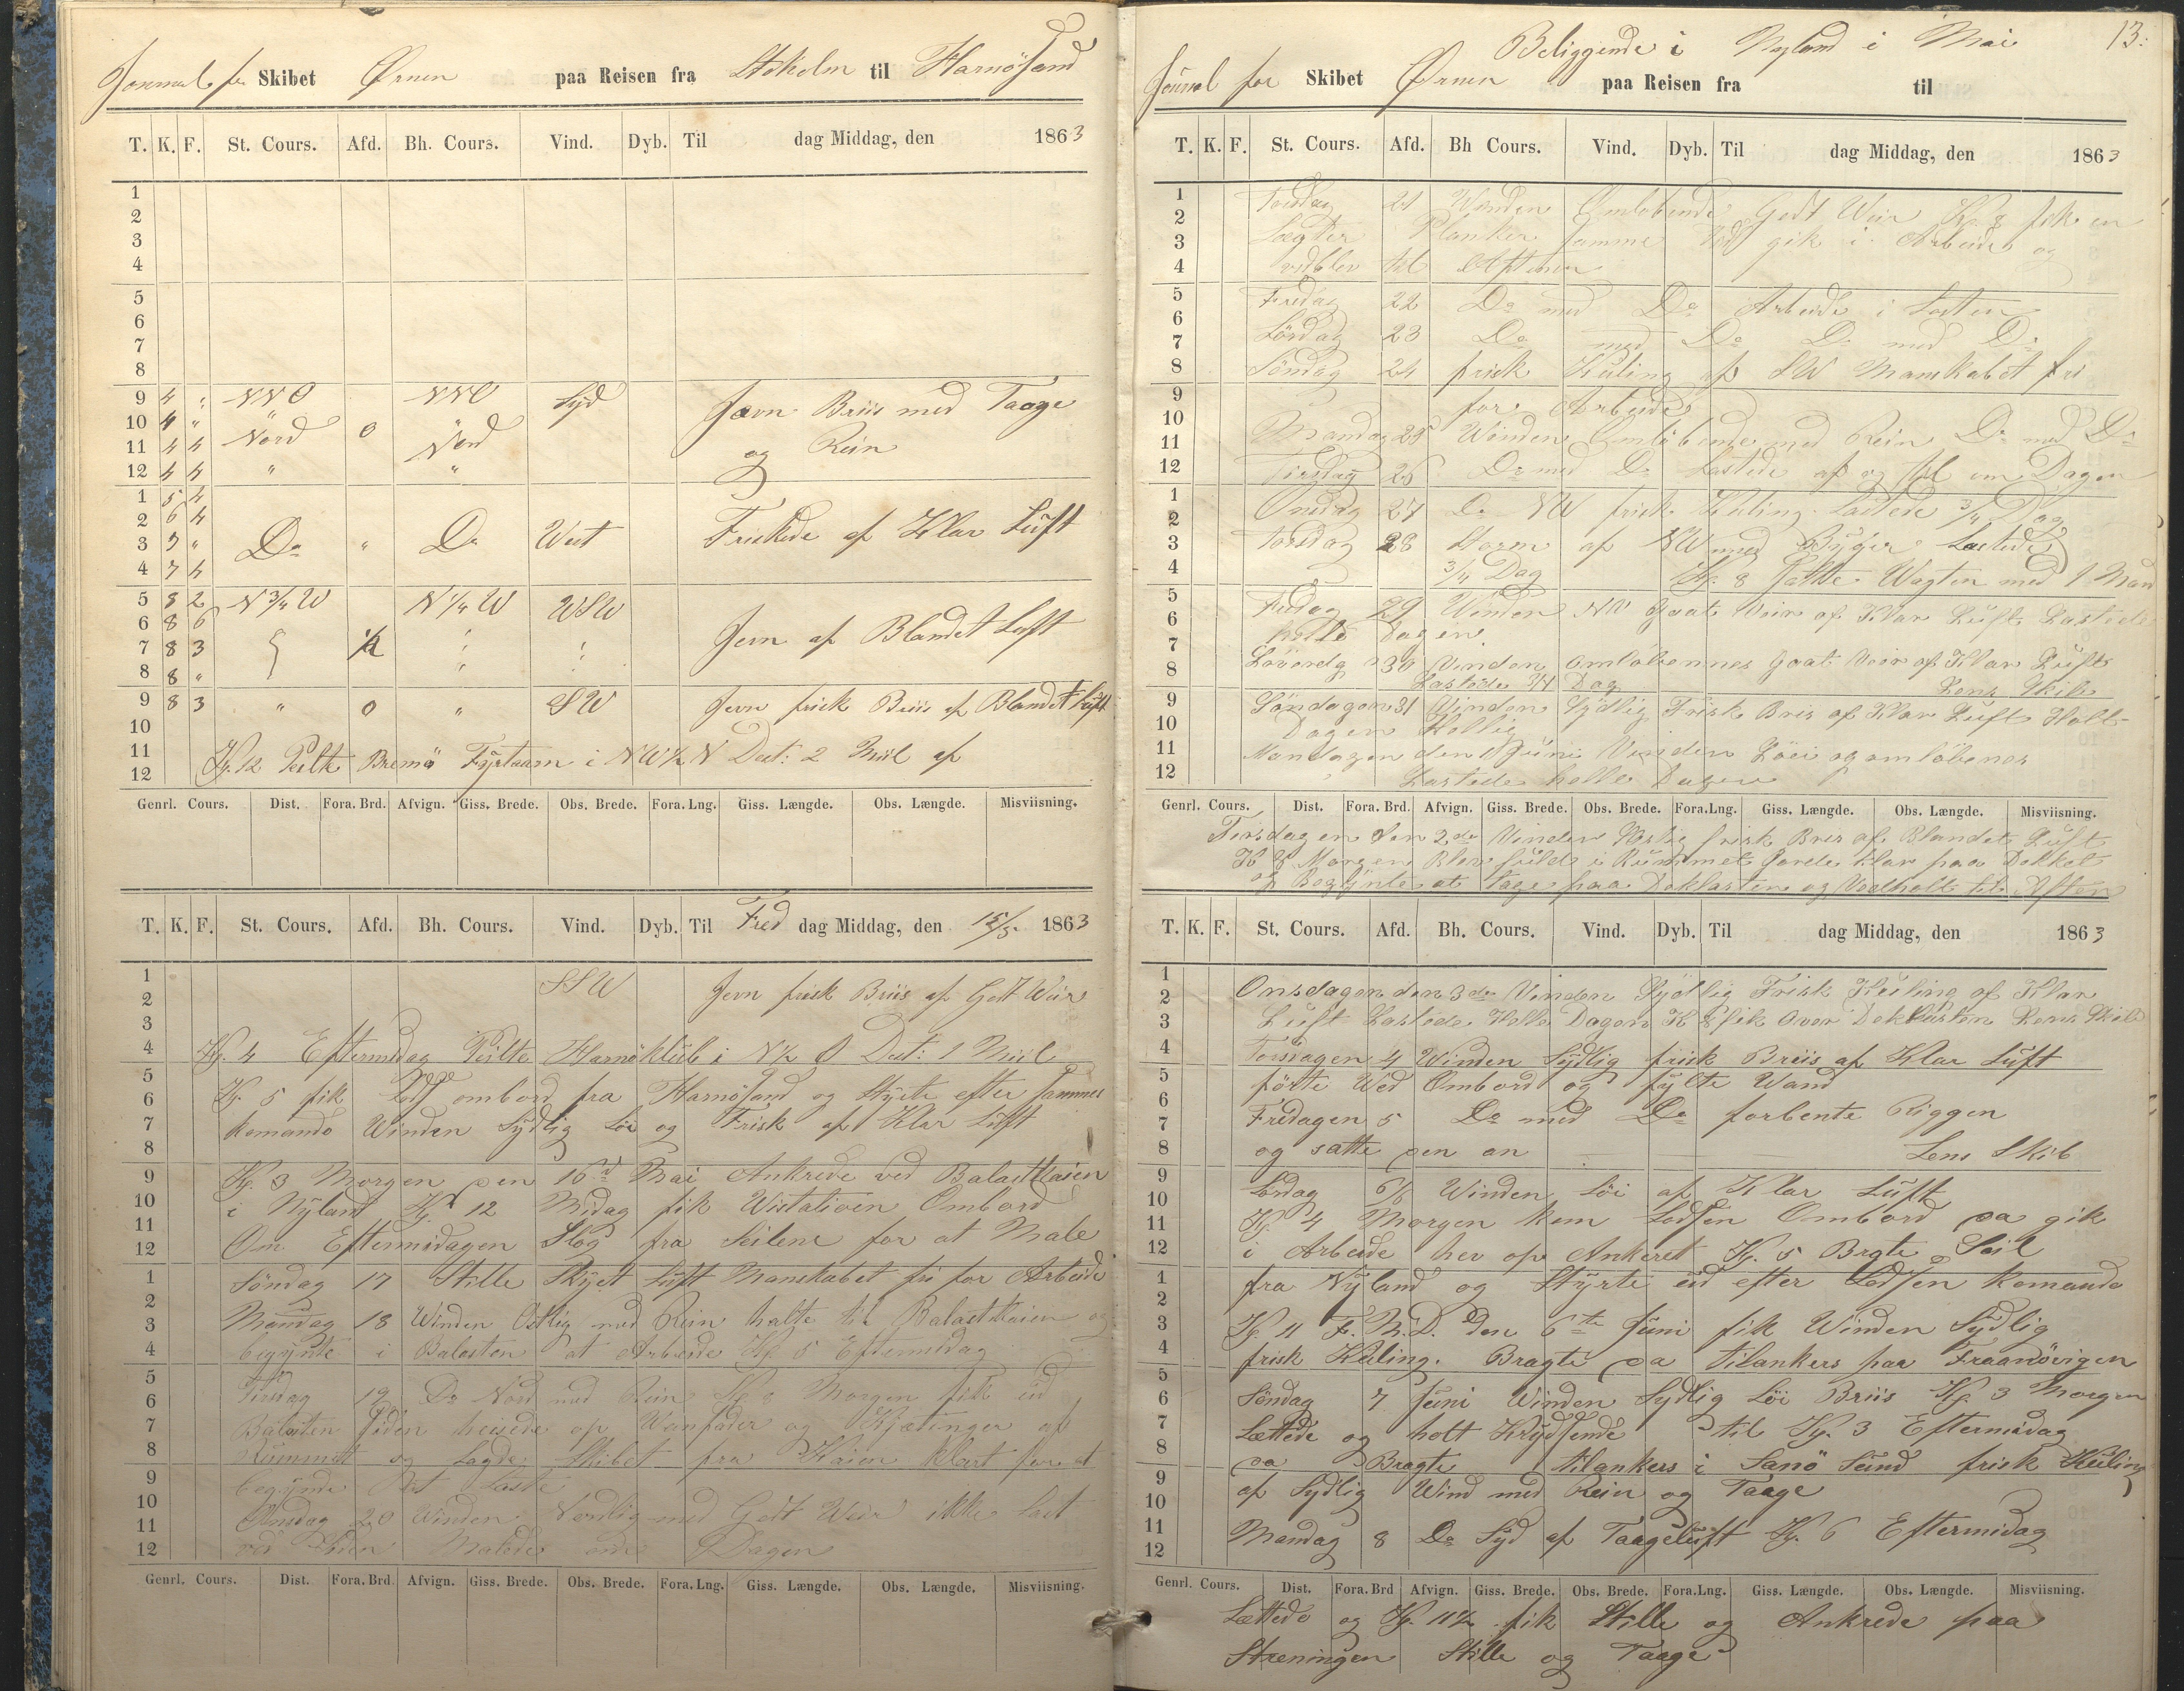 Journal for Skibet Ørnen paa Reisen fra Stokolm til Harnösand
T. K. F. St. Cours. Afd. Bh. Cours. Vind. Dyb. Til dag Middag, den 1863
1
2
3
4
5
6
7
8
9 4 " NNO NNO Syd Jævn Briis med Taage
10 4 " Nord 0 Nord
11 4 4 og Rein
12 4 4 " "
1 5 4
2 6 4 Do " Do West Friskede af Klar Luft
3 7 "
4 7 4
5 8 2 N 3/4 W N 1/4 W WSW
6 8 6 Jevn af Blandet Luft
7 8 3 1/2
8 8 "
9 8 3 " 0 " SW Jevn frisk Briis af Blandet Luft
10
11 Kl. 12 Peilte Bremö Fyrtaarn i NW 1/2 N Dist: 2 Miil af
12
Genrl. Cours. Dist. Fora. Brd. Afvign. Giss. Brede. Obs. Brede. Fora. Lng. Giss. Længde. Obs. Længde. Misviisning.
T. K. F. St. Cours. Afd. Bh. Cours. Vind. Dyb. Til Fred dag Middag, den 15/5 1863
1 SSW Jevn frisk Briis af Gott Weir
2
3
4 Kl. 4 Eftermidag Peilte Harnöklub i N 1/2 O Dist: 1 Miil
5 Kl. 5 fik Lods ombord fra Harnösand og Styrte efter sammes
6
7 Komando Winden Sydlig Löi og Frisk af Klar Luft
8
9 Kl. 3 Morgen den 16d Mai Ankrede ved Balastkaien
10 i Nyland Kl 12 Midag fik Wistatioen Ombord
11 Om Eftermidagen Slog fra Seilene for at Male
12
1 Söndag 17 Stille Skyet Luft Manskabet fri for Arbeide
2 Mandag 18 Winden Ostlig med Rein halte til Balastkaien og
3
4 begynte i Balasten at Arbeide Kl 5 Eftermidag
5 Tirsdag 19 Do Nord med Rein Kl 8 Morgen fik ud
6
7 Balasten siden heisede op Wanfader og Kjætinger af
8 Rummet og Lagde Skibet fra Kaien klart for at
9 begynde at Laste
10 Onsdag 20 Winden Nordlig med Godt Weir ikke Last
11
12 ved Siden Malede om Dagen
Genrl. Cours. Dist. Fora. Brd. Afvign. Giss. Brede. Obs. Brede. Fora. Lng. Giss. Længde. Obs. Længde. Misviisning.
13.
Beliggende i Nyland i Mai
Journal for Skibet Ørnen paa Reisen fra til
T. K. F. St. Cours. Afd. Bh Cours. Vind. Dyb. Til dag Middag, den 1863
1 Torsdag 21 Winden Omlöbende Godt Weir Kl. 8 fik en
2 Lægter Planker samme Tid gik i Arbeide og
3
4 vedblev til Aftenen
5 Fredag 22 Do med Do Arbeide i Lasten
6
7 Lördag 23 Do med Do Do med Do
8 Söndag 24 frisk Kuling af SW Manskabet fri
9 for Arbeide
10
11 Mandag 25 Winden Omlöbende med Rein Do med Do
12 Tirsdag 26 Do med Do Lastede af og til om Dagen
1 Onsdag 27 Do NW frisk Kuling Lastede 3/4 Dag
2
3 Torsdag 28 Storm af NW med Byger Lastede
4 3/4 Dag Kl. 8 Satte Wagten med 1 Mand
5 Fredag 29 Winden NW Goat Veir af Klar Luft Lastede
6
7 hellé Dagen
8 Löverdg 30 Vinden omlöbennes Goat Veir af Klar Luft
Lastede 3/4 Dag Lens Skib
9 Söndagen 31 Vinden Sydlig Frisk Bris af Klar Luft Holt
10 Dagen Hellig
11 Mandagen den 1 Juni Vinden Löei og omlöbenes
12 Lastede helle Dagen
Genrl. Cours. Dist. Fora. Brd. Afvign. Giss. Brede. Obs. Brede. Fora.Lng. Giss. Længde. Obs. Længde. Misviisning.
Tirsdagen den 2de Vinden frisk Bris af Blandet Luft
Kl 8 Morgen Blev fuld i Rummet Jorde klar paa Dekket
og Begÿnte at tage paa Deklasten og Vedholt til Aften
T. K. F. St. Cours. Afd. Bh. Cours. Vind. Dyb. Til dag Middag, den 1863
1 Onsdagen den 3de Vinden Sydlig Frisk Kuling af Klar
2
3 Luft Lastede Helle Dagen Kl 8 fik Over Deklasten Lens Skib
4 Torsdagen 4 Winden Sydlig frisk Briis af Klar Luft
5 förte Wed Ombord og fylte Wand
6
7 Fredagen 5 Do med Do forbente Riggen
8 og satte den an Lens Skib
9 Lördag 6/6 Winden Löi af Klar Luft
10
11 Kl. 4 Morgen kom Lodsen Ombord da gik
12 i Arbeide hev op Ankeret Kl. 5 Bragte Seil
1 fra Nyland og Styrte ud efter Lodsen Komando
2
3 Kl. 11 F.M.D. den 6te Juni fik Winden Sydlig
4 frisk Kuling. Bragte da tilankers paa Fraanövigen
5
6 Söndag 7 Juni Winden Sydlig Löi Briis Kl. 3 Morgen
7 Lættede og holt Krydsende til Kl. 3 Eftermidag
8 da Bragte tilankers i Sanö Sund frisk Kuling
9 af Sydlig Wind med Rein og Taage
10
11 Mandag 8 Do Syd af Taageluft Kl. 6 Eftermidag
12
Genrl. Cours. Dist. Fora. Brd Afvign. Giss. Brede. Obs. Brede. Fora.Lng. Giss. Længde. Obs. Længde. Misviisning.
Lættede og Kl. 11 1/2 fik Stille og Ankrede paa
Strømingen Stille og Taage